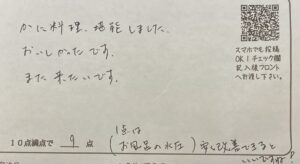 かに料理、堪能しました。
おいしかったです。
また来たいです。
スマホでも投稿
OK!チェック欄
記入後フロント
へお渡し下さい。
10点満点で 9 点 (1点は お風呂の水位) 少し改善できると
いいですね